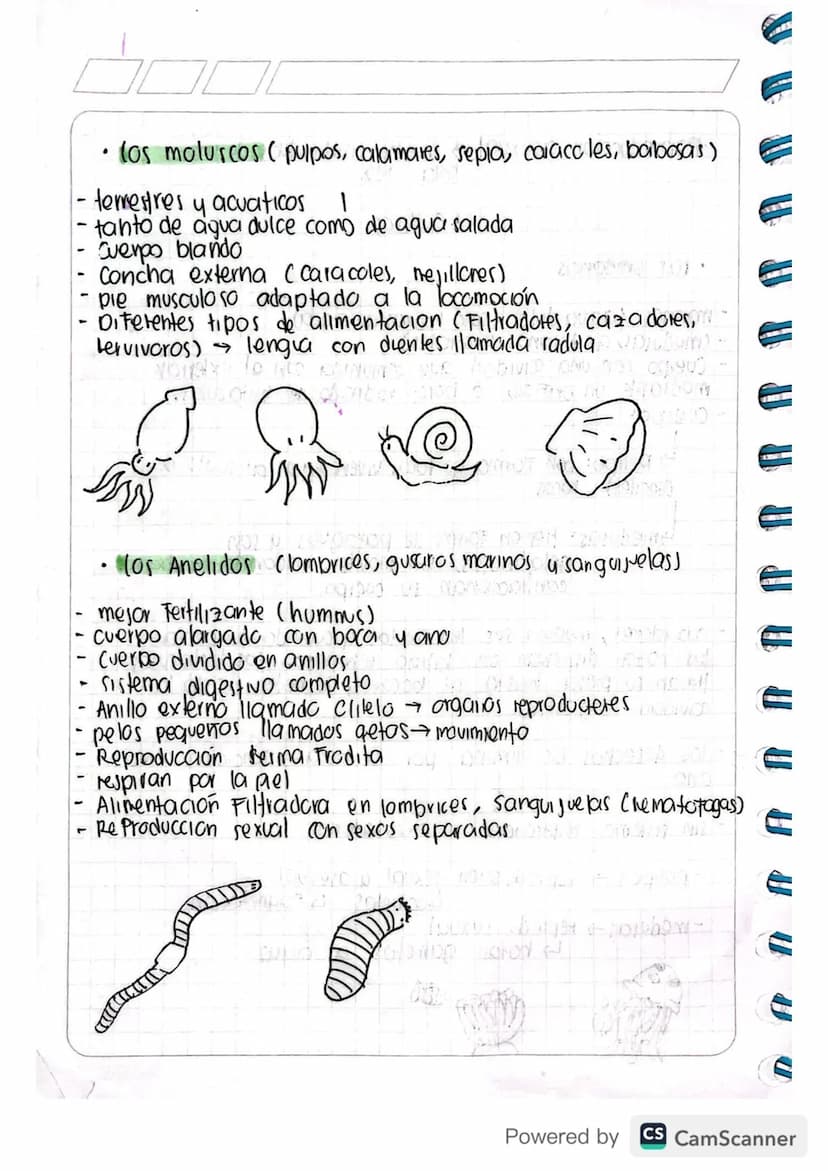 • los moluscos ( pulpos, calamares, sepia, caracoles, babosas )
- terrestres y acuaticos
- tanto de agua dulce como de agua salada
- cuerpo blando
- concha externa ( caracoles, mejillones )
- pie musculoso adaptado a la locomoción
- Diferentes tipos de alimentacion ( Filtradores, cazadores,
hervivoros ) → lengua con dientes llamada radula
• los Anelidos ( lombrices, gusanos marinos y sanguijuelas )
- mejor Fertilizante ( humnus )
- cuerpo alargado con boca y ano
- cuerpo dividido en anillos
- sistema digestivo completo
- Anillo externo llamado Clitelo → organos reproductores
- pelos pequeños llamados qetos → movimiento
- Reproducción hermafrodita
- respiran por la piel
- Alimentación Filtradora en lombrices, sanguijuelas ( hematofagas )
- Reproduccion sexual con sexos separadas
Powered by CS CamScanner